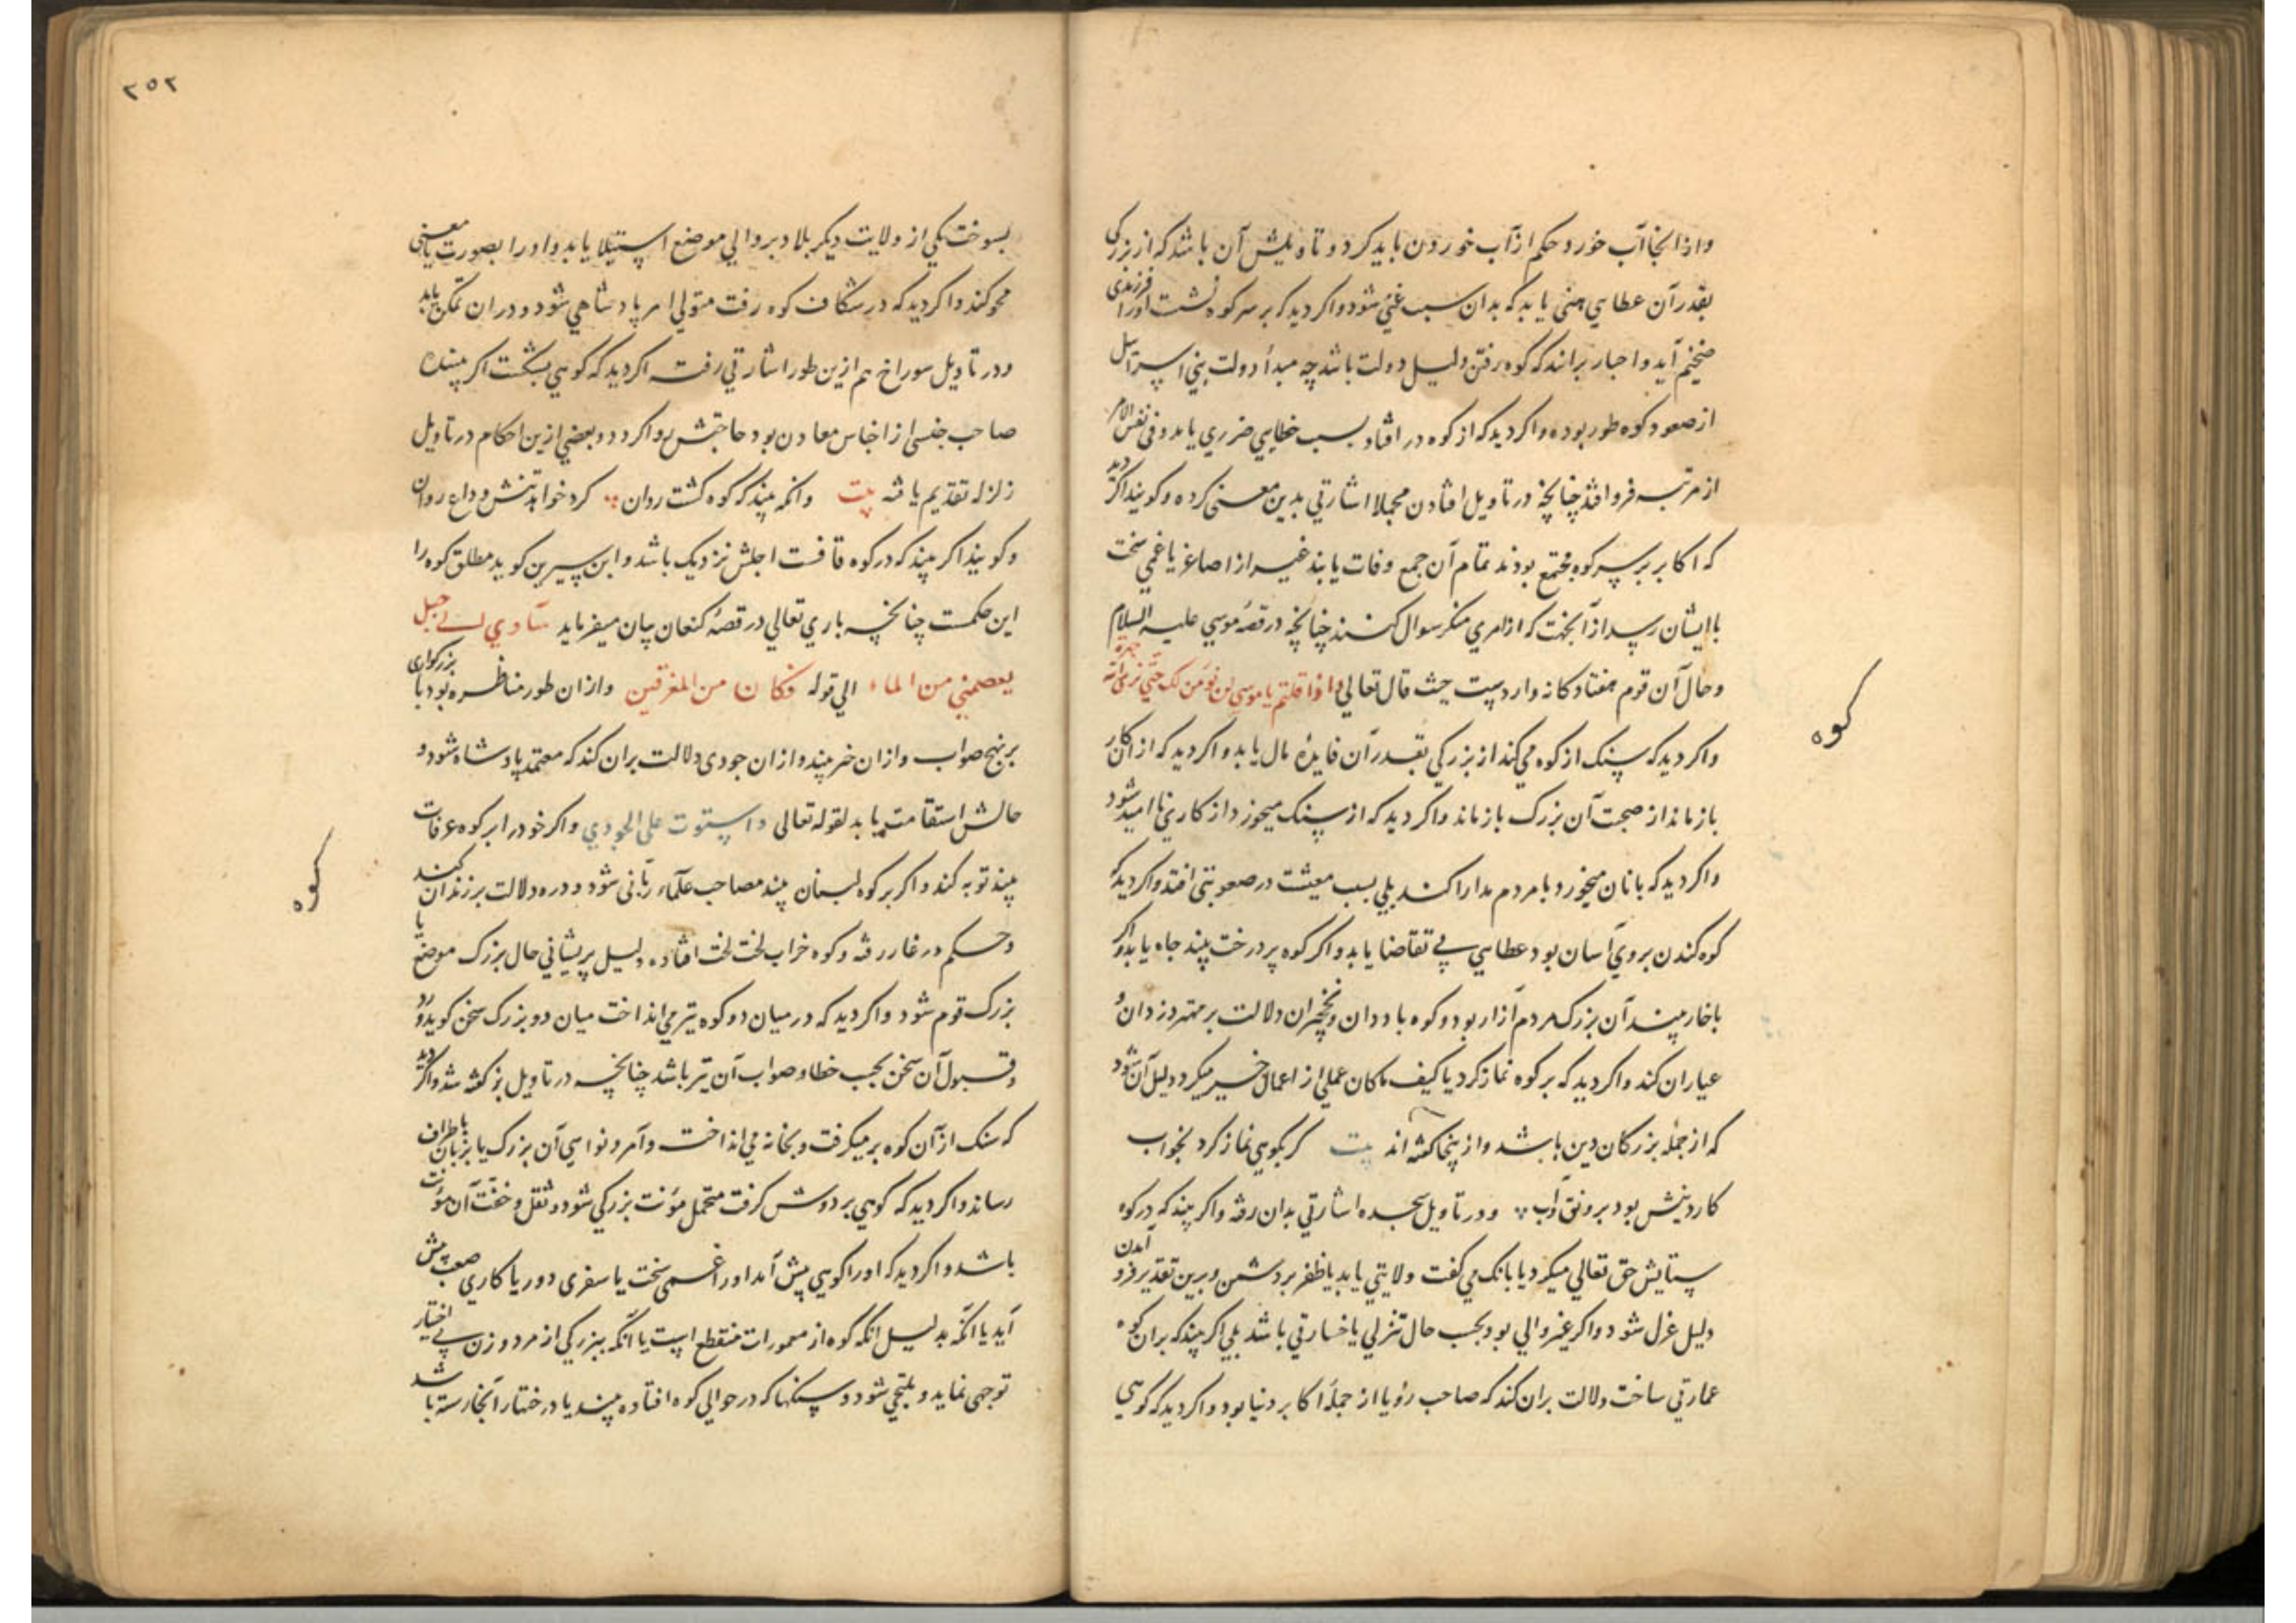 واز انجا آب خورد حکم از آب خوردن باید کرد و تاویلش آن باشد که از بزرکی
بقدر آن عطایی هنی یابد که بدان سبب غنی شود و اکر دید که بر سر کوه نشست اورا فرزندی
ضخیم آید و احبار برانند که کوه رفتن دلیل دولت باشد چه مبدأ دولت بنی اسرائیل
از صعود کوه طور بوده و اکر دید که از کوه در افتاد بسبب خطایی ضرری یابد و فی نفس الامر
از مرتبه فرو افتد چنانچه در تاویل افتادن مجملا اشارتی بدین معنی کرده و کویند اکر دید
که اکابر بر سر کوه مجتمع بودند تمام آن جمع وفات یابند غیر از اصاغر یا غمی سخت
با ایشان رسد از آنجهت که از امری منکر سوال کنند چنانچه در قصه موسی علیه السلام
و حال آن قوم هفتاد کانه واردست حیث قال تعالی واذا قلتم یا موسی لن نؤمن لک حتی نری الله جهرة
کوه
واکر دید که سنک از کوه می کند از بزرکی بقدر آن فایده مال یابد و اکر دید که از آن کار
باز ماند از صحبت آن بزرک باز ماند و اکر دید که از سنک میخورد از کاری نا امید شود
واکر دید که با نان میخورد با مردم مدارا کند بلی بسبب معیشت در صعوبتی افتد و اکر دید که
کوه کندن بروی آسان بود عطایی بی تقاضا یابد و اکر کوه پر درخت بیند جاه یابد و اکر
با خار بیند آن بزرک مردم آزار بود و کوه با ددان و نخچیران دلالت بر مهتر دزدان و
عیاران کند و اکر دید که بر کوه نماز کرد یا کیف ماکان عملی از اعمال خیر میکرد دلیل آن شود
که از جمله بزرکان دین باشد و از پنجا کفته اند بیت کر بکوهی نماز کرد بخواب
کار دینش بود برونق و آب و در تاویل سجده اشارتی بدان رفته و اکر بیند که در کوه
ستایش حق تعالی میکرد یا بانک می کفت ولایتی یابد یا ظفر بر دشمن و برین تقدیر فرود آمدن
دلیل عزل شود و اکر غیر والی بود بحسب حال تنزلی یا خسارتی باشد بلی اکر بیند که بران کوه
عمارتی ساخت دلالت بران کند که صاحب رؤیا از جمله اکابر دنیا بود و اکر دید که کوهی
٢٥٢
بسوخت یکی از ولایت دیکر بلا دبر والی موضع استیلا یابد و اورا بصورت یا معنی
محو کند و اکر دید که در شکاف کوه رفت متولی امر پادشاهی شود و دران تمکن یابد
و در تاویل سوراخ هم ازین طور اشارتی رفت اکر دید که کوهی بشکست اکر بیننده
صاحب جنسی از اجناس معادن بود حاجتش روا کردد و بعضی ازین احکام در تاویل
زلزله تقدیم یافته بیت وانکه بیند که کوه کشت روان کرد خواهد تنش وداع روان
و کویند اکر بیند که در کوه قافست اجلش نزدیک باشد و ابن سیرین کوید مطلق کوه را
این حکمست چنانچه باری تعالی در قصه کنعان بیان میفرماید سآوی الی جبل
یعصمنی من الماء الی قوله فکان من المغرقین و ازان طور مناظره بود با بزرکواری
بر نهج صواب و ازان خر بیند و ازان جودی دلالت بران کند که معتمد پادشاه شود و
حالش استقامت یابد لقوله تعالی واستوت علی الجودی و اکر خود را بر کوه عرفات
بیند توبه کند و اکر بر کوه لبنان بیند مصاحب علماء ربانی شود و دره دلالت بر زندان کند
کوه
و حکم در غار رفته و کوه خراب لخت لخت افتاده دلیل پریشانی حال بزرک موضع یا
بزرک قوم شود و اکر دید که در میان دو کوه تیر می انداخت میان دو بزرک سخن کوید و رد
و قبول آن سخن بحسب خطا و صواب آن تیر باشد چنانچه در تاویل بز کفته شد و اکر دید
که سنک از آن کوه بر میکرفت و بخانه می انداخت و آمر و نواهی آن بزرک یا بزبان باطراف
رساند و اکر دید که کوهی بر دوش کرفت متحمل مؤنت بزرکی شود و ثقل و خفت آن مؤنت
باشد و اکر دید که اورا کوهی پیش آمد اورا غمی سخت یا سفری دور یا کاری صعب پیش
آید یا آنکه بدلیل آنکه کوه از معمورات منقطع است یا آنکه ببزرکی از مرد و زن بی اختیار
توجهی نماید و ملتجی شود و سنکها که در حوالی کوه افتاده بیند یا درختها را انجا رسته باشد